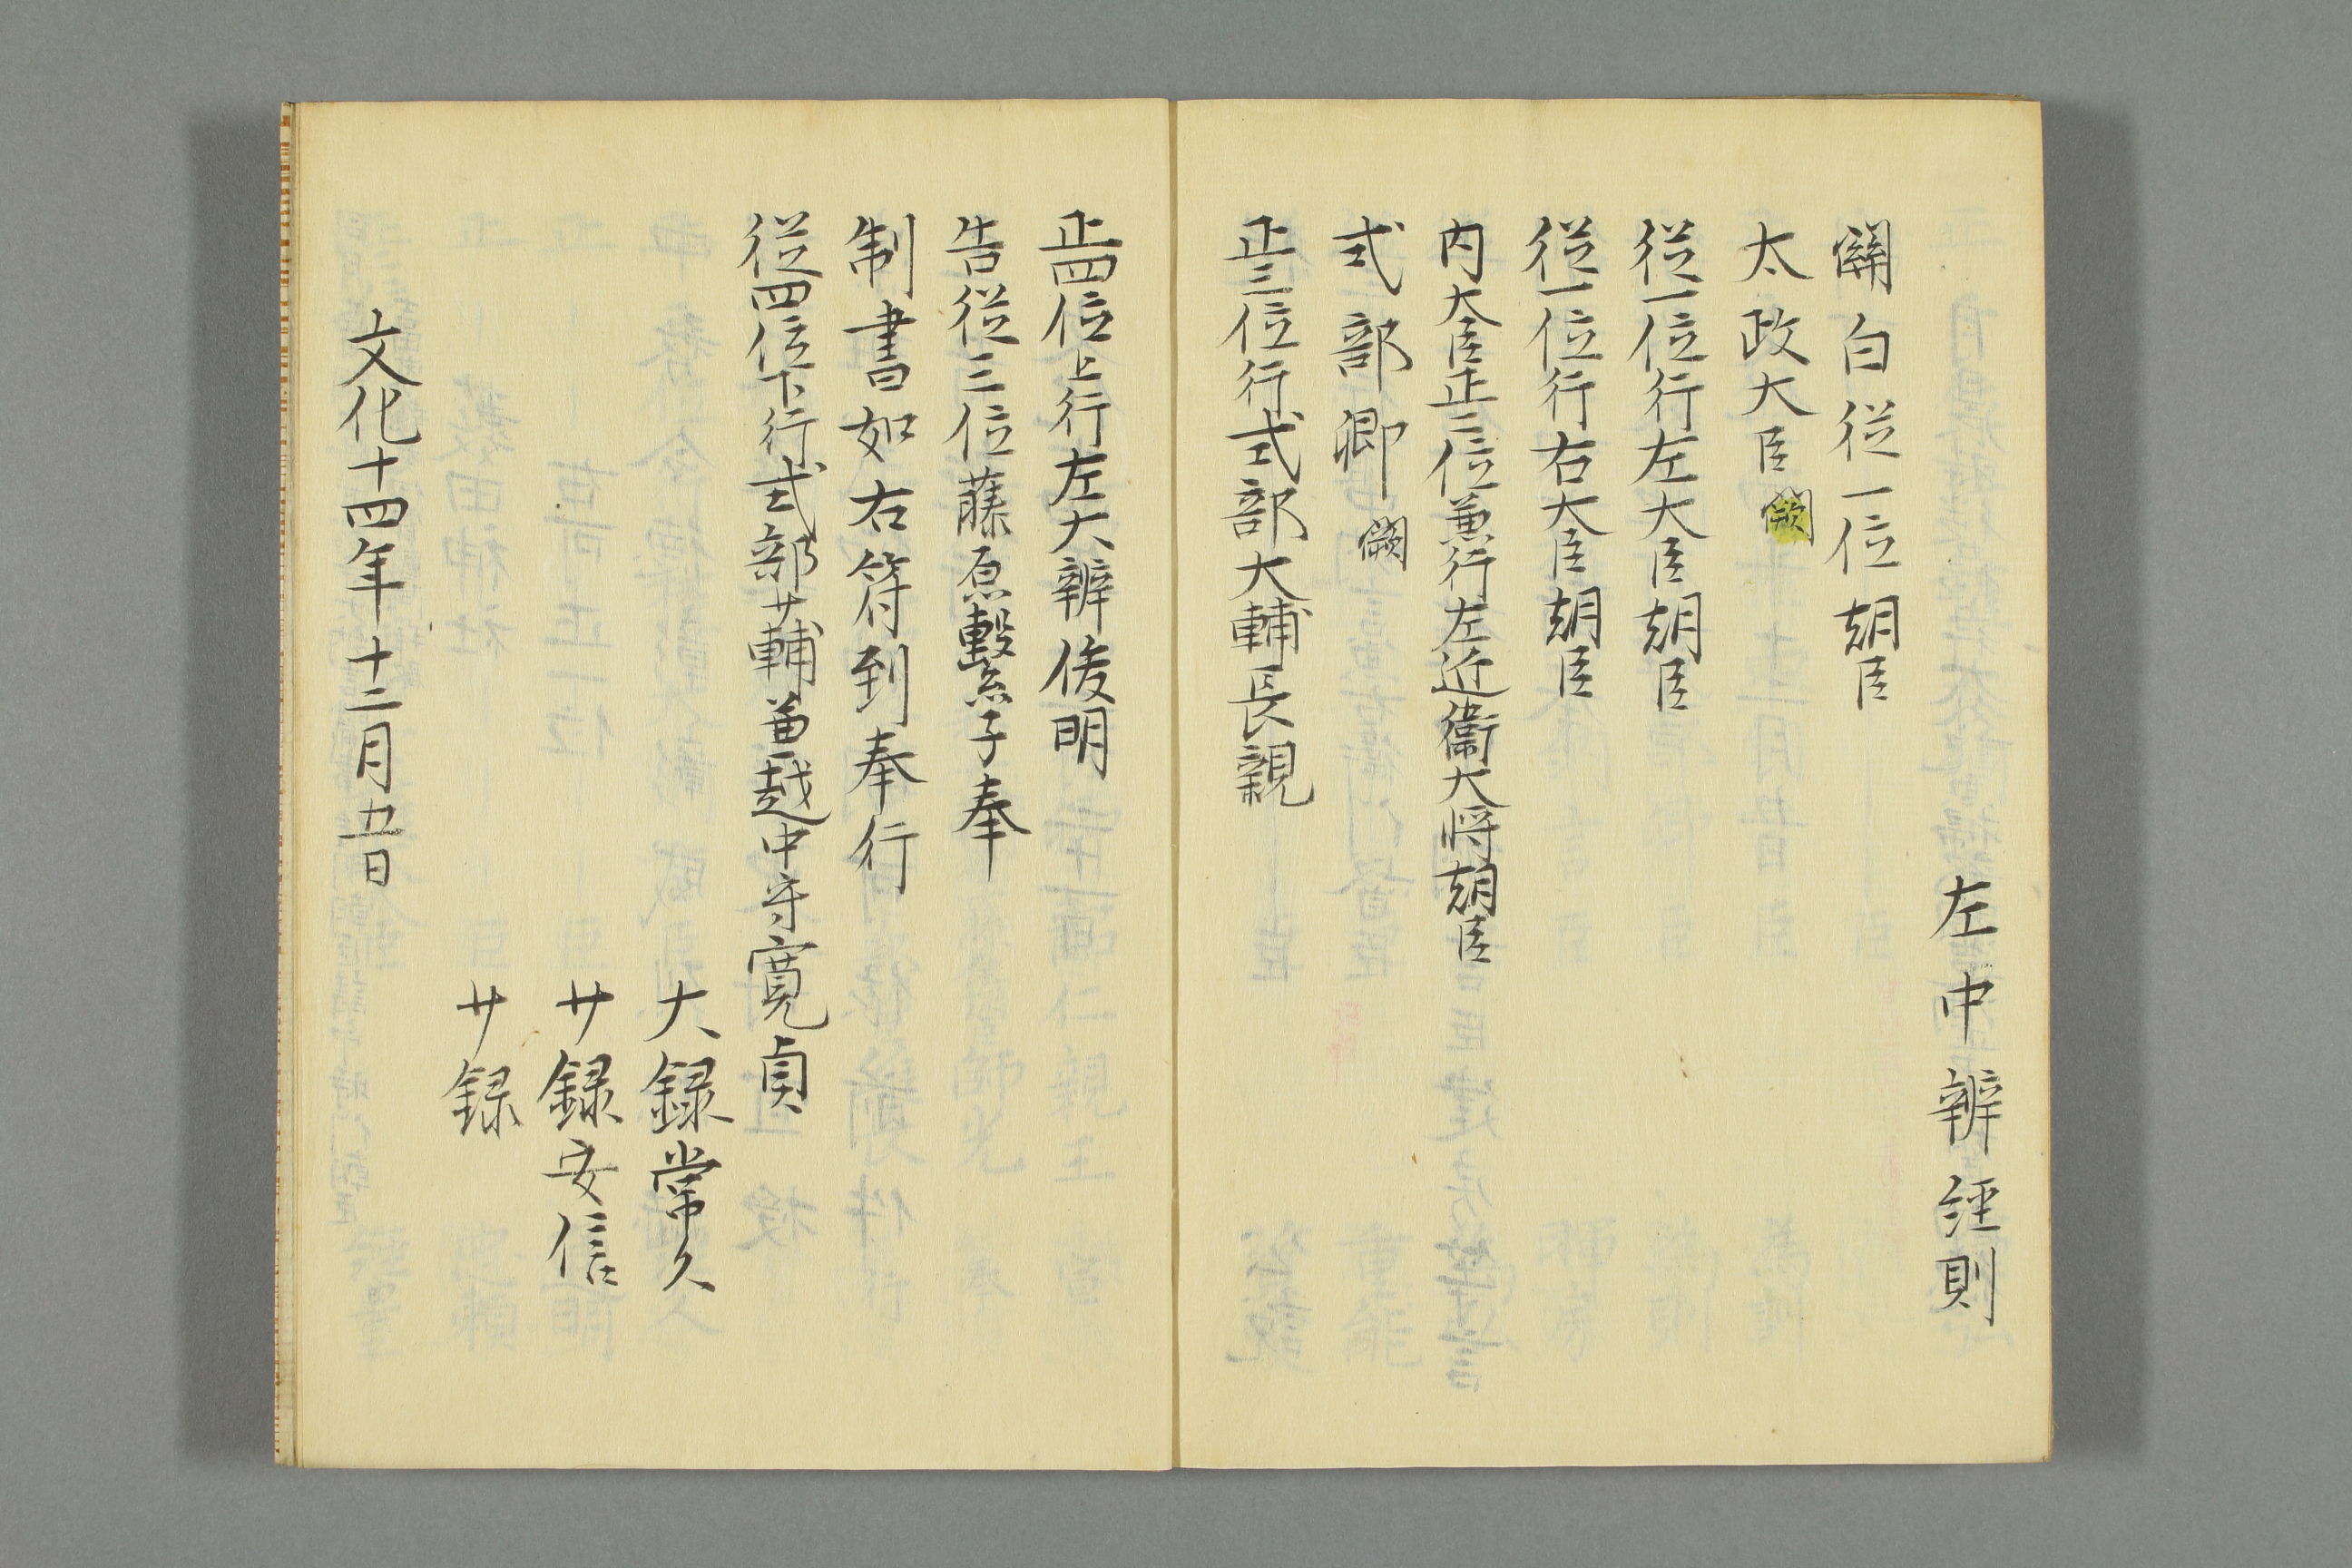 左中辨経則
關白従一位朝臣
太政大臣闕
従一位行左大臣朝臣
従一位行右大臣朝臣
内大臣正二位兼行左近衛大将朝臣
式部卿闕
正三位行式部大輔長親
正四位上行左大辨俊明
告従三位藤原繋子奉
制書如右符到奉行
従四位下行式部少輔兼越中守寛貞
大録常久
少録安信
少録
文化十四年十二月五日